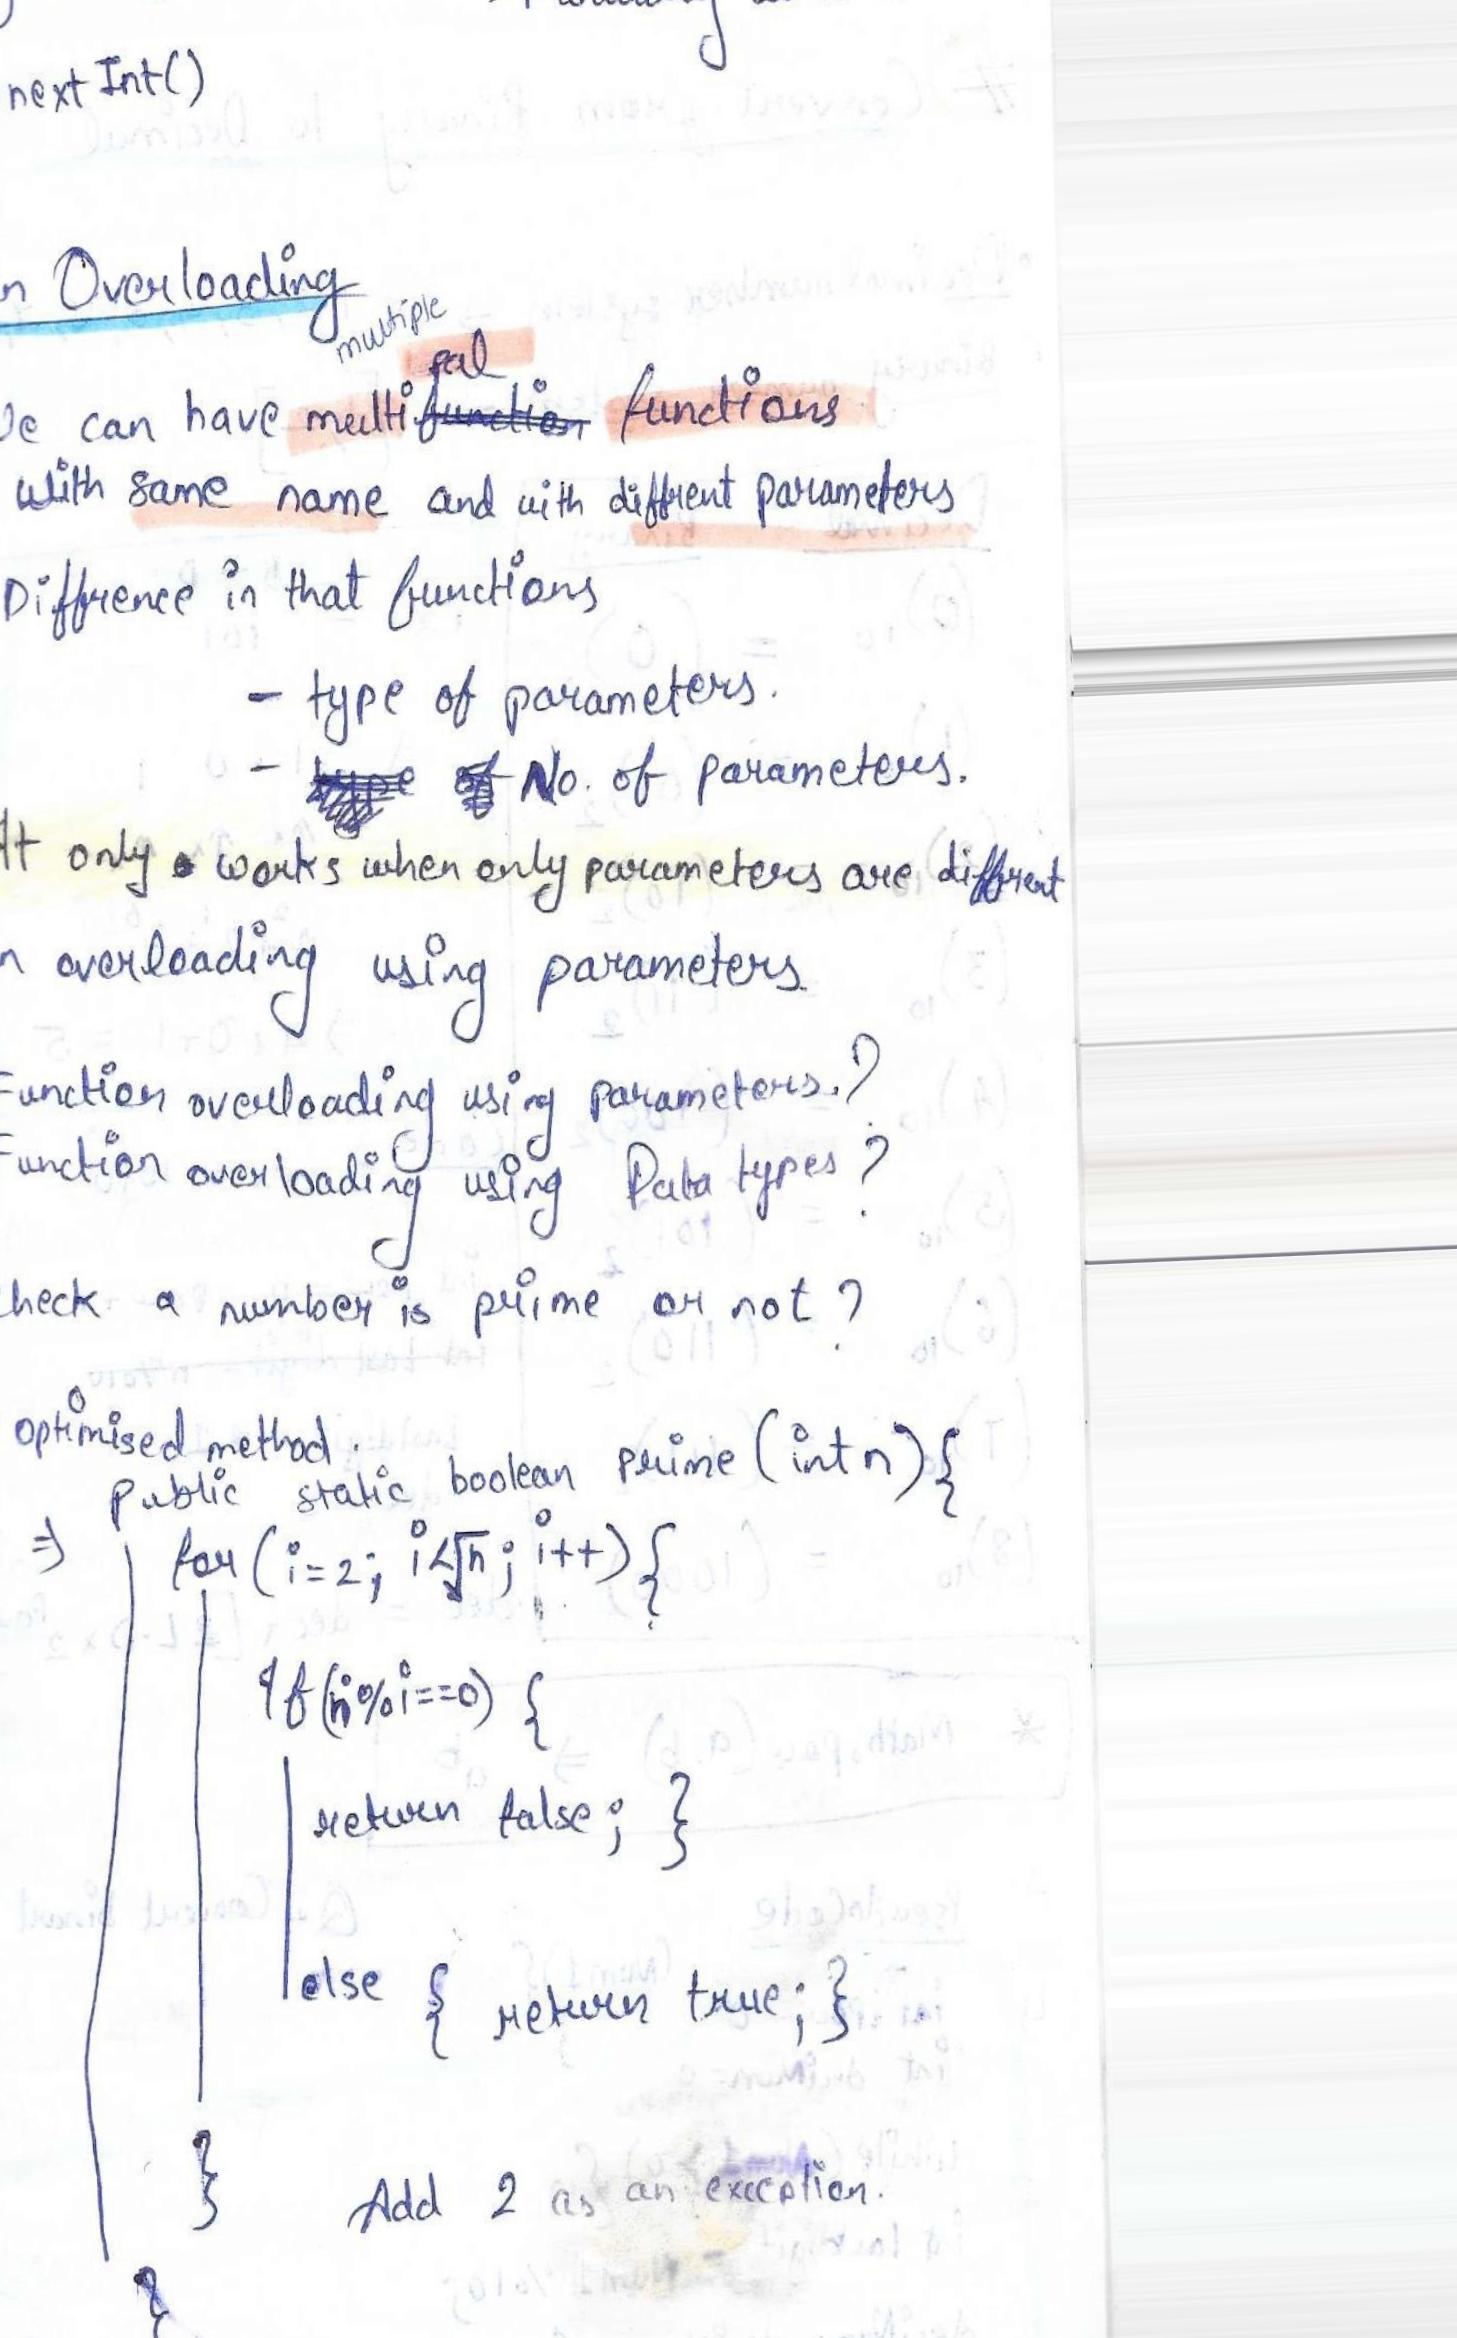 next Int()
n Overloading
multiple
pal
We can have multi functions
with same name and with diffrent parameters
Diffrence in that functions
- type of parameters.
- No. of parameters.
It only works when only parameters are diffrent
n overloading using parameters
Function overloading using parameters.?
Function overloading using Data types?
check a number is prime or not?
optimised method.
public static boolean prime (int n) {
⇒ for (i=2; i<√n; i++) {
If (n%i==0) {
return false; }
else { return true; }
}
Add 2 as an exception.